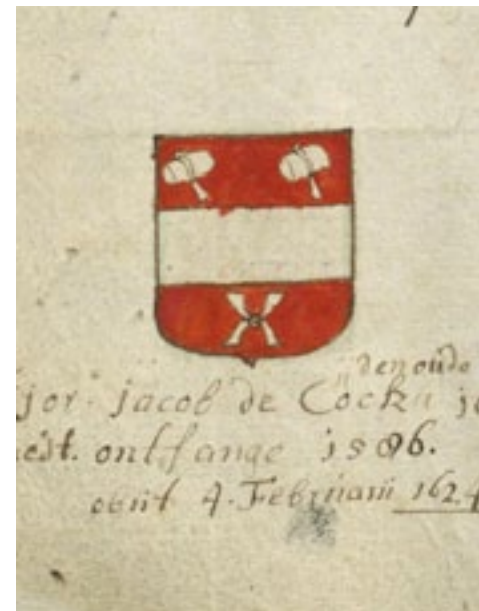 den oude
jor. jacob de Cock
ontfange 1586.
obiit 4. Februarii 1624